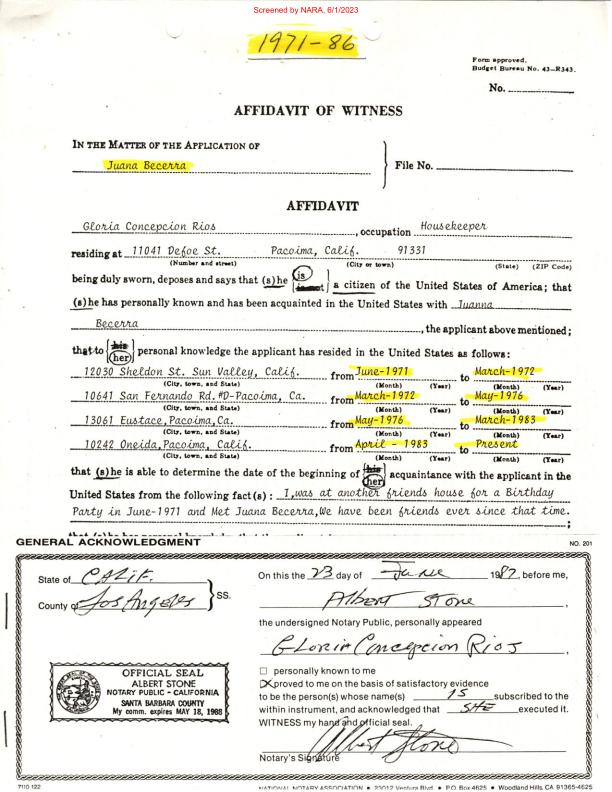 Screened by NARA, 6/1/2023
1971-86
Form approved.
Budget Bureau No. 43—R343.
No.
AFFIDAVIT OF WITNESS
IN THE MATTER OF THE APPLICATION OF
Juana Becerra
File No.
AFFIDAVIT
Gloria Concepcion Rios, occupation Housekeeper
residing at 11041 Defoe St. Pacoima, Calif. 91331
(Number and street) (City or town) (State) (ZIP Code)
being duly sworn, deposes and says that (s)he is is not a citizen of the United States of America; that
(s)he has personally known and has been acquainted in the United States with Juanna
Becerra, the applicant above mentioned;
that to his her personal knowledge the applicant has resided in the United States as follows:
12030 Sheldon St. Sun Valley, Calif. from June-1971 to March-1972
(City, town, and State) (Month) (Year) (Month) (Year)
10641 San Fernando Rd. #D-Pacoima, Ca. from March-1972 to May-1976
(City, town, and State) (Month) (Year) (Month) (Year)
13061 Eustace, Pacoima, Ca. from May-1976 to March-1983
(City, town, and State) (Month) (Year) (Month) (Year)
10242 Oneida, Pacoima, Calif. from April - 1983 to Present
(City, town, and State) (Month) (Year) (Month) (Year)
that (s)he is able to determine the date of the beginning of his her acquaintance with the applicant in the
United States from the following fact(s): I,was at another friends house for a Birthday
Party in June-1971 and Met Juana Becerra,We have been friends ever since that time.
;
GENERAL ACKNOWLEDGMENT NO. 201
State of Calif.
County of Los Angeles
SS.
On this the 23 day of June 1987, before me,
Albert Stone,
the undersigned Notary Public, personally appeared
Gloria Concepcion Rios,
personally known to me
proved to me on the basis of satisfactory evidence
to be the person(s) whose name(s) IS subscribed to the
within instrument, and acknowledged that SHE executed it.
WITNESS my hand and official seal.
Albert Stone
Notary's Signature
OFFICIAL SEAL
ALBERT STONE
NOTARY PUBLIC - CALIFORNIA
SANTA BARBARA COUNTY
My comm. expires MAY 18, 1988
7110 122
NATIONAL NOTARY ASSOCIATION • 23012 Ventura Blvd. • P.O. Box 4625 • Woodland Hills, CA 91365-4625